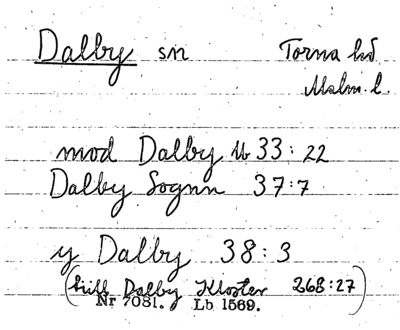 Dalby sn Torna hd
Malm. l.
mod Dalby U 33:22
Dalby Sognn 37:7
y Dalby 38:3
(till Dalby Kloster 268:27)
Nr 7081. Lb 1569.